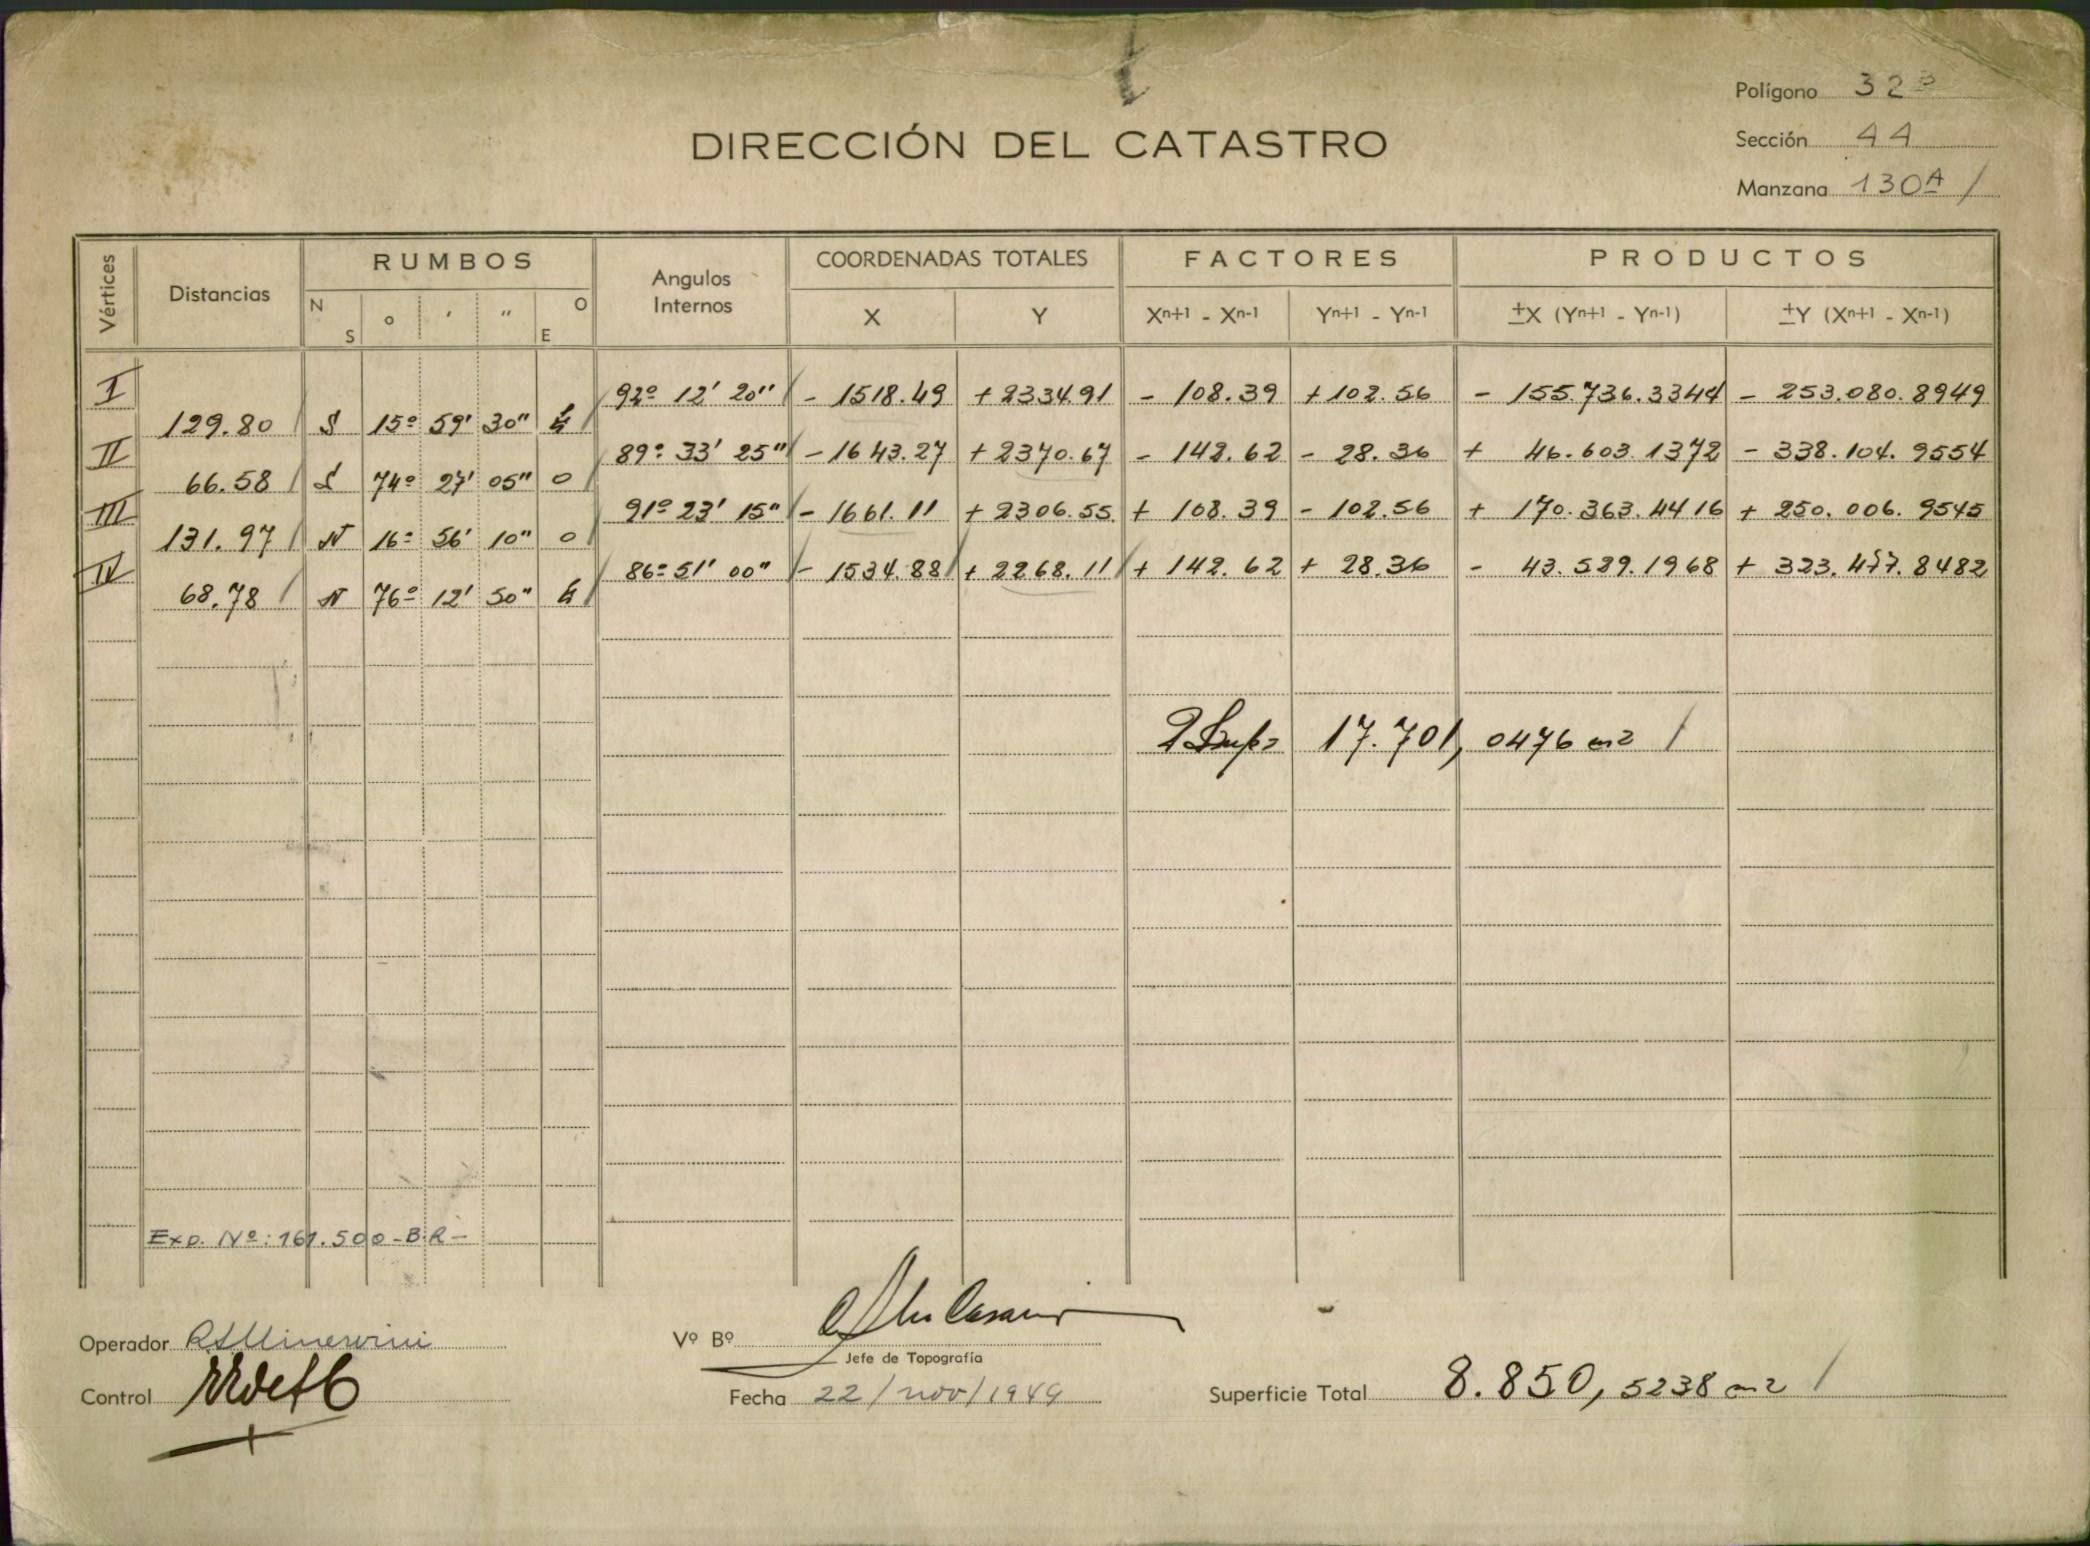 Polígono 32B
DIRECCIÓN DEL CATASTRO
Sección 44
Manzana 130A /
Vértices Distancias RUMBOS Angulos Internos COORDENADAS TOTALES FACTORES PRODUCTOS
N S ° ' " O E X Y Xn+1 - Xn-1 Yn+1 - Yn-1 ±X (Yn+1 - Yn-1) ±Y (Xn+1 - Xn-1)
I 92° 12' 20" - 1518.49 + 2334.91 - 108.39 + 102.56 - 155.736.3344 - 253.080.8949
129.80 S 15° 59' 30" E
II 89° 33' 25" - 1643.27 + 2370.67 - 142.62 - 28.36 + 46.603.1372 - 338.104.9554
66.58 S 74° 27' 05" O
III 91° 23' 15" - 1661.11 + 2306.55 + 108.39 - 102.56 + 170.363.4416 + 250.006.9545
131.97 N 16° 56' 10" O
IV 86° 51' 00" - 1534.88 + 2268.11 + 142.62 + 28.36 - 43.529.1968 + 323.477.8482
68.78 N 76° 12' 50" E
2 Sup= 17.701,0476 m2 /
Exp. Nº: 161.500-B.R-
Operador
Vº Bº
Jefe de Topografía
Control
Fecha 22/nov/1949
Superficie Total 8.850,5238 m2 /